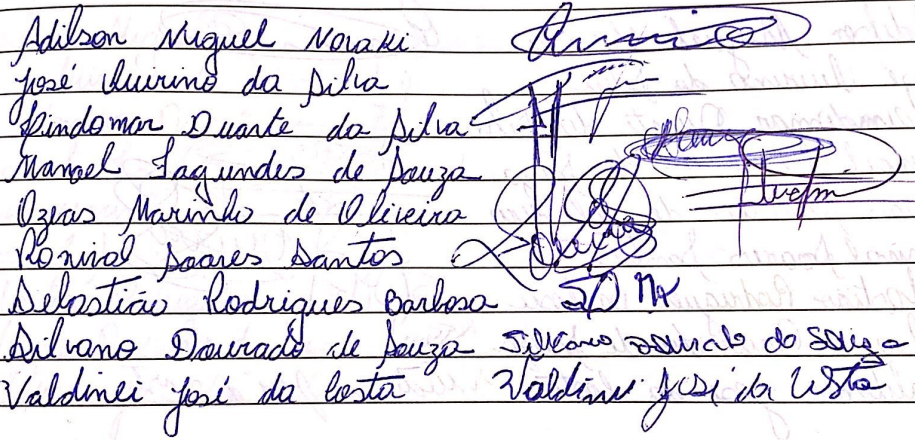 Adilson Miguel Novaki
José Quirino da Silva
Lindomar Duarte da Silva
Manoel Fagundes de Souza
Ozeas Marinho de Oliveira
Ronival Soares Santos
Sebastião Rodrigues Barbosa
Silvano Dourado de Souza Silvano Dourado de Souza
Valdinei José da Costa Valdinei José da Costa